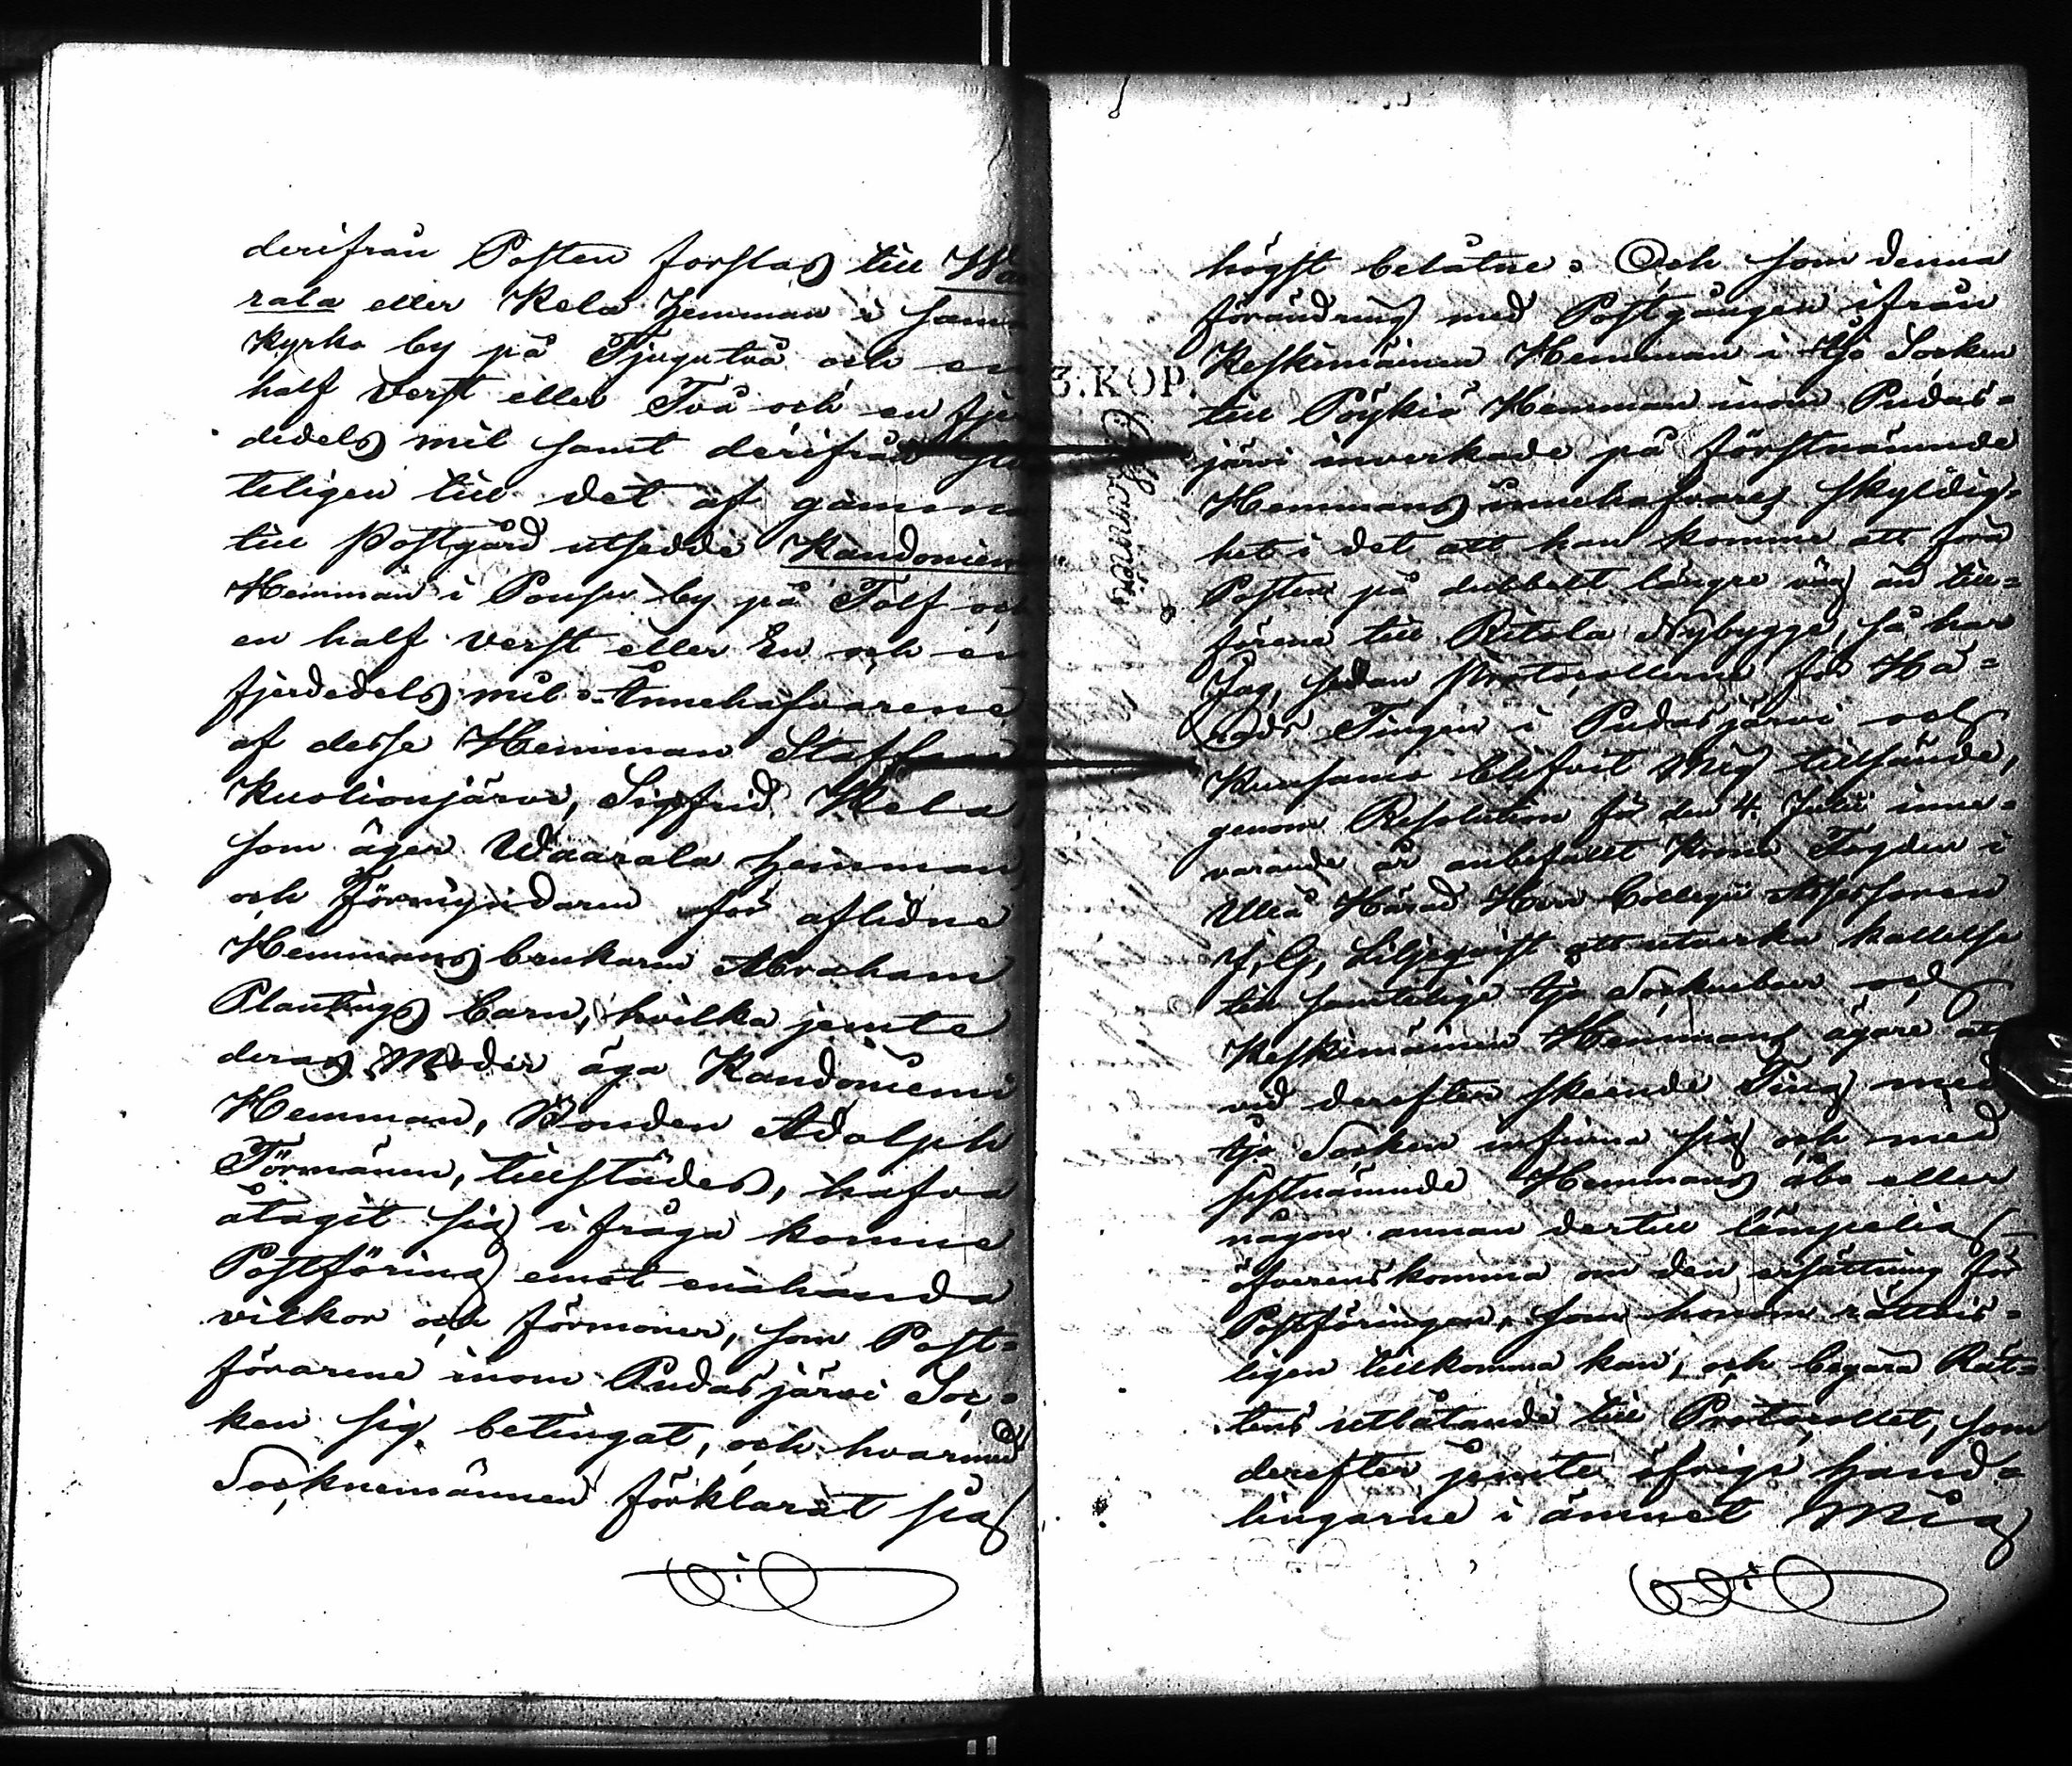 derifrån Posten forslas till Waa
rala eller Kela Hemman i samma
Kyrko by på Tjugutvå och en
half Verst eller Två och en fjer
dedels mil samt derifrån slu
teligen till det af gamma
till Postgård utsedde Kandoniem
Hemman i Poussu by på Tolf och
en half Verst eller En och en
fjerdedels mil. Innehafvarene
af desse Hemman Staffan
Kuolionjärvi, Sigfrid Kela
som äger Waarala Hemman
och Förmyndaren för aflidne
Hemmans brukaren Abraham
Plantings barn, hvilka jemte
deras Moder äga Kandoniemi
Hemman, Bonden Adolph
Törmänen, tillstädes, hafva
åtagit sig i fråga komne
Postföring emot enahanda
vilkor och förmoner, som Post=
förarene inom Pudasjärvi Soc=
ken sig betingat, och hvarmed
Socknemännen förklarat sig
högst belåtne. Och som denna
förändring med Postgången ifrån
Keskimäinen Hemman i Ijo Socken
till Pöykiö Hemman inom Pudas=
järvi inverkade på förstnämnde
Hemmans innehafvares skyldig=
het i det att han komme att föra
Posten på dubbelt längre väg än till=
förene till Ritola Nybygge, så har
Jag, sedan Protocollerne för Hä=
rads Tingen i Pudasjärvi och
Kuusamo blifvit Mig tillsände,
genom Resolution för den 4. Julii inne=
varande år anbefallt Krono Fogden i
Uleå Härad Herr Collegii Assessoren
J. G. Liljeqvist att utverka kallelse
till samtelige Ijo Sockneboer och
Keskimäinen Hemmans ägare att
vid derefter skeende Ting med
Ijo Socken infinna sig och med
sistnämnde Hemmans åbo eller
någon annan dertill lämpelig
öfverenskomma om den ersättning för
Postföringen, som honom rättvis=
ligen tillkomma kan, och begära Rät=
tens utlåtande till Protocollet, som
derefter jemte öfrige Hand=
lingarne i ämnet Mig